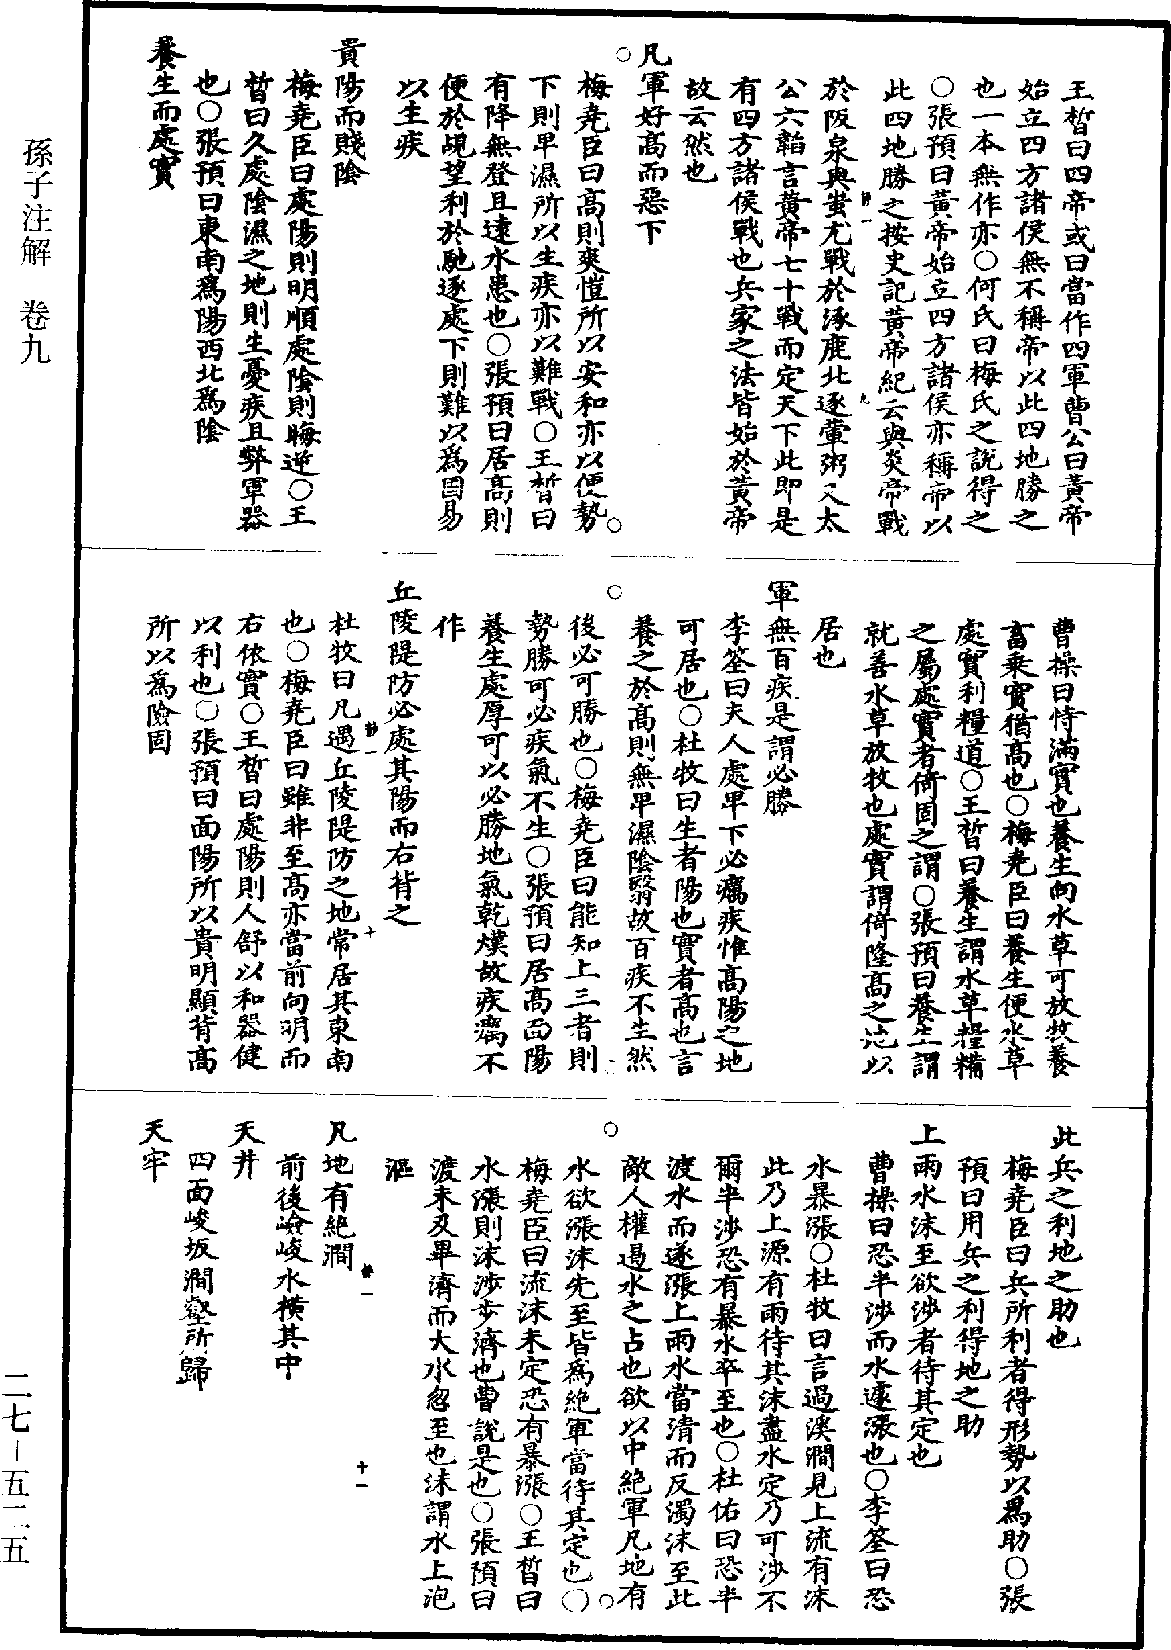 王晳曰四帝或曰當作四軍曹公曰黃帝
始立四方諸侯無不稱帝以此四地勝之
也一本無作亦○何氏曰梅氏之說得之
○張預曰黃帝始立四方諸侯亦稱帝以
此四地勝之按史記黃帝紀云與炎帝戰
於阪泉與蚩尤戰於涿鹿北逐葷粥又太
公六韜言黃帝七十戰而定天下此即是
有四方諸侯戰也兵家之法皆始於黃帝
故云然也
凡軍好高而惡下
梅堯臣曰高則爽愷所以安和亦以便勢
下則卑濕所以生疾亦以難戰○王晳曰
有降無登且遠水患也○張預曰居高則
便於覘望利於馳逐處下則難以為固易
以生疾
貴陽而賤陰
梅堯臣曰處陽則明順處陰則晦逆○王
晳曰久處陰濕之地則生憂疾且弊軍器
也○張預曰東南為陽西北為陰
養生而處實
曹操曰恃滿實也養生向水草可放牧養
畜乘實猶高也○梅堯臣曰養生便水草
處實利糧道○王晳曰養生謂水草糧糒
之屬處實者倚固之謂○張預曰養生謂
就善水草放牧也處實謂倚隆高之地以
居也
軍無百疾是謂必勝
李筌曰夫人處卑下必癘疾惟高陽之地
可居也○杜牧曰生者陽也實者高也言
養之於高則無卑濕陰翳故百疾不生然
後必可勝也○梅堯臣曰能知上三者則
勢勝可必疾氣不生○張預曰居高面陽
養生處厚可以必勝地氣乾熯故疾癘不
作
丘陵隄防必處其陽而右背之
杜牧曰凡遇丘陵隄防之地常居其東南
也○梅堯臣曰雖非至高亦當前向明而
右依實○王晳曰處陽則人舒以和器健
以利也○張預曰面陽所以貴明顯背高
所以為險固
此兵之利地之助也
梅堯臣曰兵所利者得形勢以為助○張
預曰用兵之利得地之助
上雨水沫至欲涉者待其定也
曹操曰恐半涉而水遽漲也○李筌曰恐
水暴漲○杜牧曰言過溪澗見上流有沫
此乃上源有雨待其沫盡水定乃可涉不
爾半涉恐有暴水卒至也○杜佑曰恐半
渡水而遂漲上雨水當清而反濁沫至此
敵人權遏水之占也欲以中絕軍凡地有
水欲漲沫先至皆為絕軍當待其定也○
梅堯臣曰流沫未定恐有暴漲○王晳曰
水漲則沫涉步濟也曹說是也○張預曰
渡未及畢濟而大水忽至也沫謂水上泡
漚
凡地有絕澗
前後嶮峻水橫其中
天井
四面峻坂澗壑所歸
天牢
孫子注解 卷九
二七—五二五